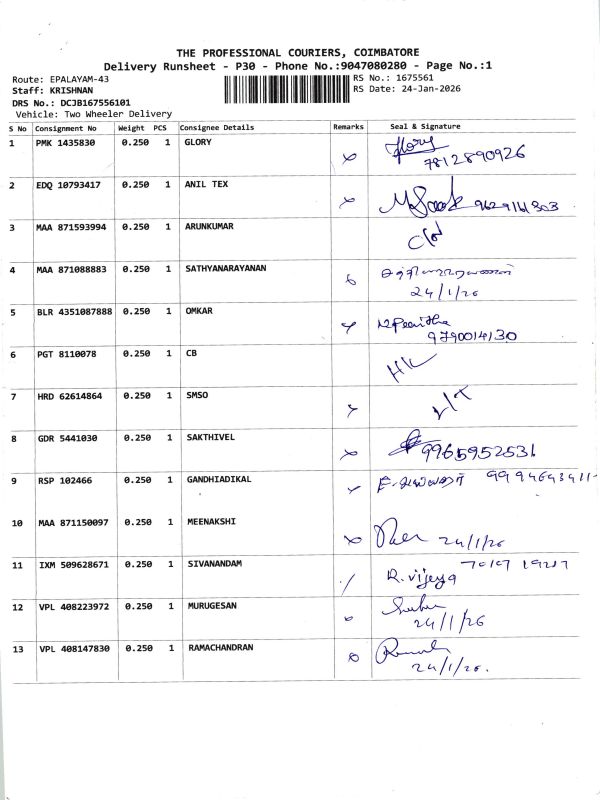 THE PROFESSIONAL COURIERS, COIMBATORE
Delivery Runsheet - P30 - Phone No.:9047080280 - Page No.:1
Route: EPALAYAM-43 RS No.: 1675561
Staff: KRISHNAN RS Date: 24-Jan-2026
DRS No.: DCJB167556101
Vehicle: Two Wheeler Delivery
S No Consignment No Weight PCS Consignee Details Remarks Seal & Signature
1 PMK 1435830 0.250 1 GLORY Glory
7812890926
2 EDQ 10793417 0.250 1 ANIL TEX 9629161303
3 MAA 871593994 0.250 1 ARUNKUMAR
4 MAA 871088883 0.250 1 SATHYANARAYANAN சத்தியநாராயணன்
24/1/26
5 BLR 4351087888 0.250 1 OMKAR
9790014130
6 PGT 8110078 0.250 1 CB
7 HRD 62614864 0.250 1 SMSO
8 GDR 5441030 0.250 1 SAKTHIVEL 9965952531
9 RSP 102466 0.250 1 GANDHIADIKAL
10 MAA 871150097 0.250 1 MEENAKSHI 24/1/26
11 IXM 509628671 0.250 1 SIVANANDAM
R. vijeya
12 VPL 408223972 0.250 1 MURUGESAN
24/1/26
13 VPL 408147830 0.250 1 RAMACHANDRAN
24/1/26.